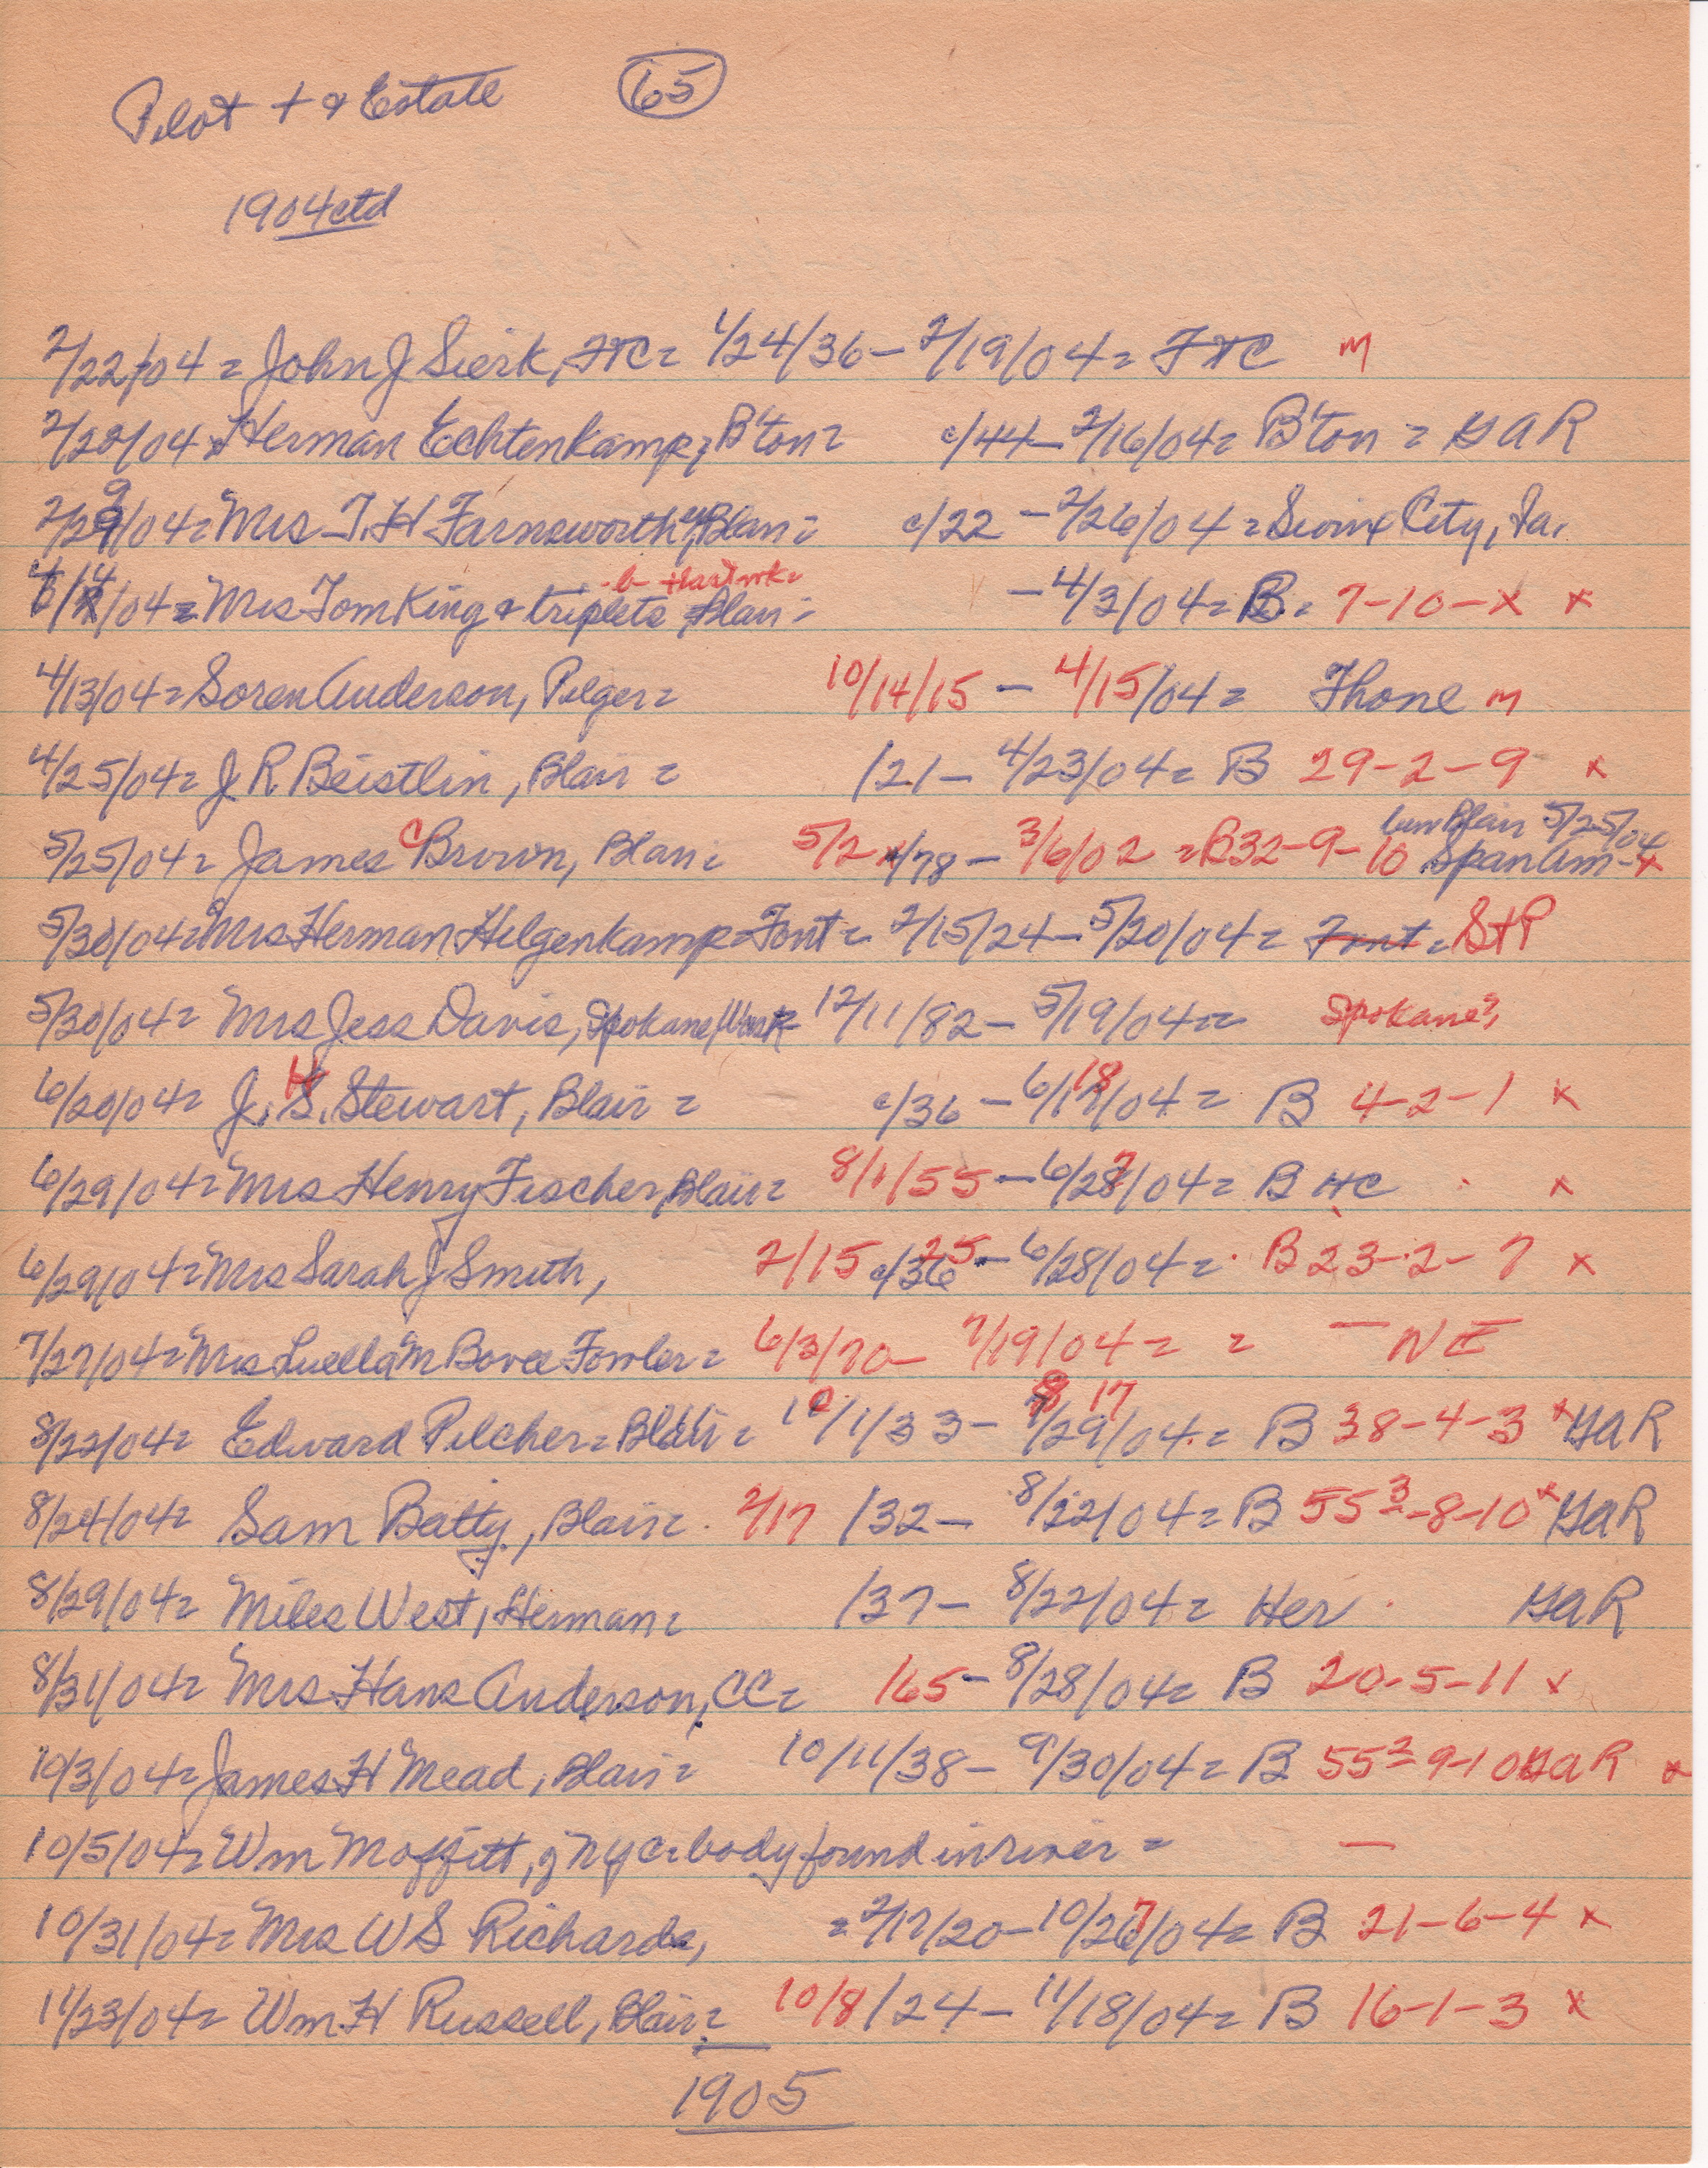 Pilot + & Estate 65
1904 ctd
2/22/04 = John J Sierk, FTC = 1/24/36 - 2/19/04 = FTC m
2/20/04 Herman Echtenkamp, B'ton = c/44 - 2/16/04 = B'ton = GAR
2/29/04 = Mrs T.H. Farnsworth, Blair = c/22 - 2/26/04 = Sioux City, Ia.
4/4/04 = Mrs Tom King & triplets Blair = - 4/3/04 = B = 7-10-x x
4/13/04 = Soren Anderson, Pilger = 10/14/15 - 4/15/04 = Fhone m
4/25/04 = J R Beistlin, Blair = /21 - 4/23/04 = B 29-2-9 x
bur Blair 5/25/04
5/25/04 = James C Brown, Blair = 5/2 /78 - 3/6/02 = B32-9-10 Span Am - x
5/30/04 = Mrs Herman Hilgenkamp = Font = 2/15/24 - 5/20/04 = Font = StP
5/30/04 = Mrs Jess Davis, Spokane, Wash 12/11/82 - 5/19/04 = Spokane?
6/20/04 = J. H. Stewart, Blair = c/36 - 6/18/04 = B 4-2-1 x
6/29/04 = Mrs Henry Fischer, Blair = 8/1/55 - 6/27/04 = B HC x
6/29/04 = Mrs Sarah J Smith, 2/15 25 - 6/28/04 = B 23-2-7 x
7/27/04 = Mrs Luella M Bovee Fowler = 6/3/70 - 7/19/04 = = - NE
8/22/04 = Edward Pilcher = Blair = 10/1/33 - 8/17/04 = B 38-4-3 x GAR
8/24/04 = Sam Batty, Blair = 2/17 /32 - 8/22/04 = B 55 3-8-10 x GAR
8/29/04 = Miles West, Herman = /37 - 8/22/04 = Her GAR
8/31/04 = Mrs Hans Anderson, CC = /65 - 8/28/04 = B 20-5-11 x
10/3/04 = James H Mead, Blair = 10/11/38 - 9/30/04 = B 55 2-9-10 GAR x
10/5/04 = Wm Moffitt, of NYC = body found in river = -
10/31/04 = Mrs W S Richards, = 2/17/20 - 10/27/04 = B 21-6-4 x
11/23/04 = Wm H Russell, Blair = 10/8/24 - 11/18/04 = B 16-1-3 x
1905